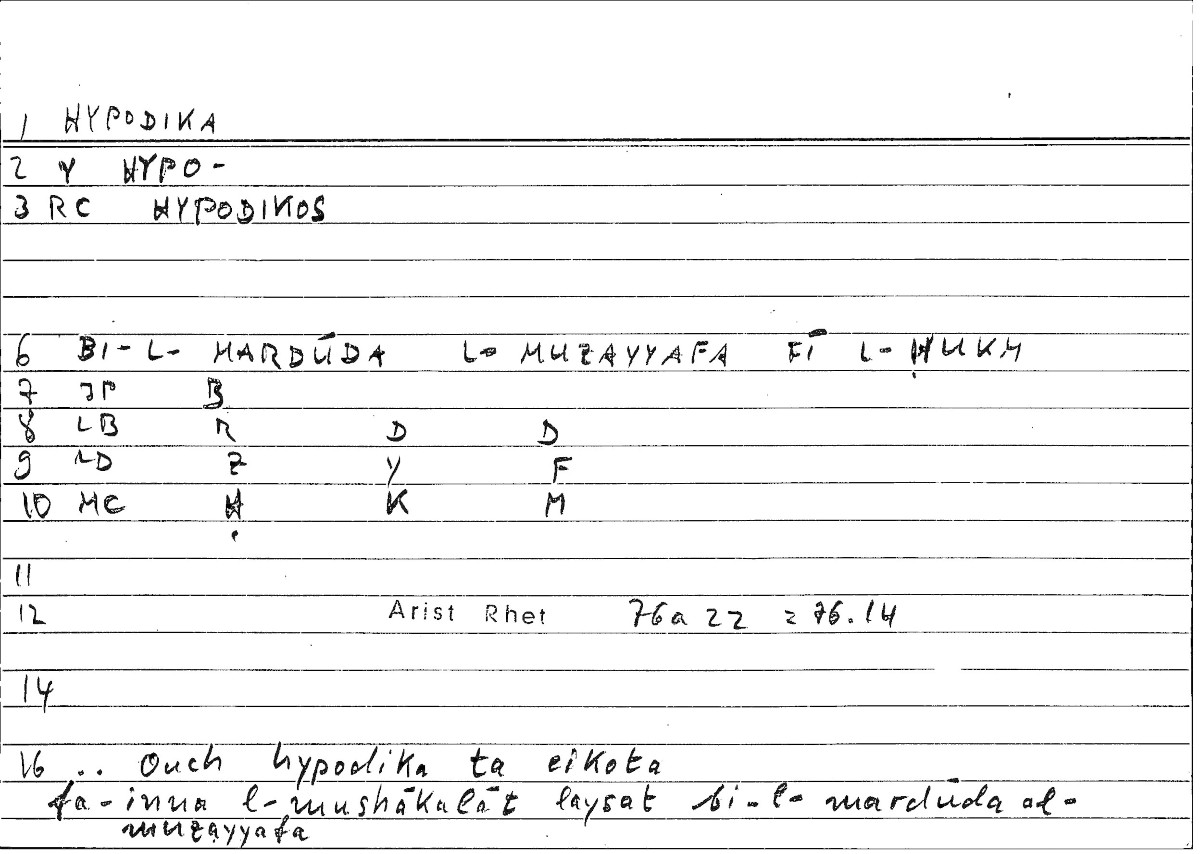 1 HYPODIKA
2 Y HYPO-
3 RC HYPODIKOS
6 BI-L- MARDŪDA L- MUZAYYAFA FĪ L-ḤUKM
7 JP B
8 LB R D D
9 LD Z Y F
10 MC Ḥ K M
11
12 Arist Rhet 76a 22 = 76.14
14
16 .. Ouch hypodika ta eikota
fa-inna l-mushākalāt laysat bi-l- mardūda al-
muzayyafa